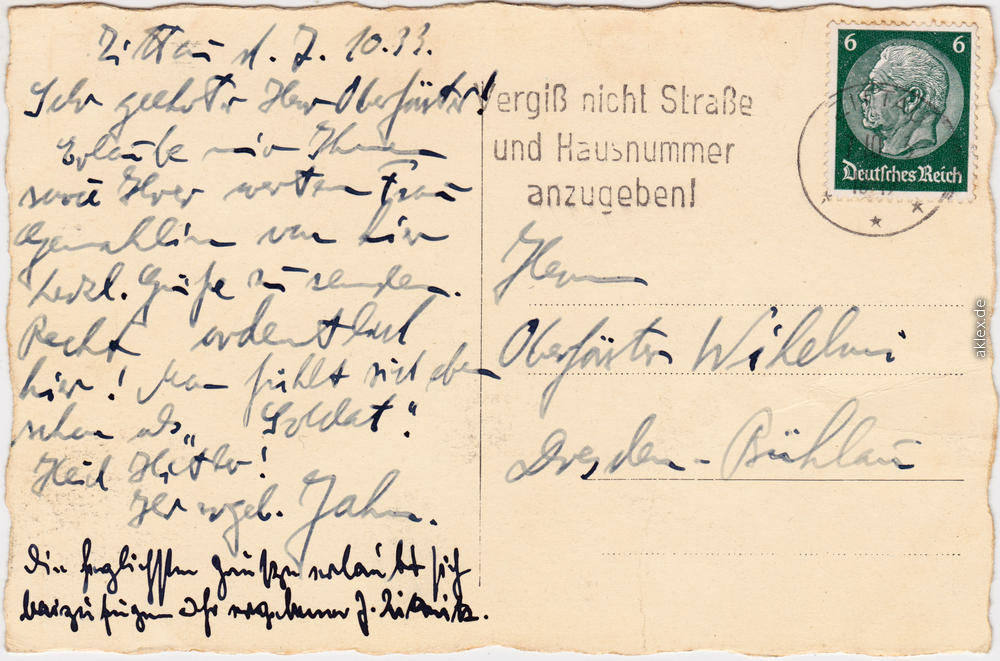 Zittau d. 7.10.33.
Sehr geehrter Herr Oberförster!
Erlaube mir Ihnen
sowie Ihrer werten Frau
Gemahlin von hier
herzl. Grüße zu senden.
Recht ordentlich
hier! Man fühlt sich eben
schon als „Soldat".
Heil Hitler!
Ihr ergeb. Jahn.
Die herzlichsten Grüße erlaubt sich
beizufügen Ihr ergebener J.
Vergiß nicht Straße
und Hausnummer
anzugeben!
6 6
Deutsches Reich
Herrn
Oberförster Wilhelmi
Dresden-Bühlau
aklex.de